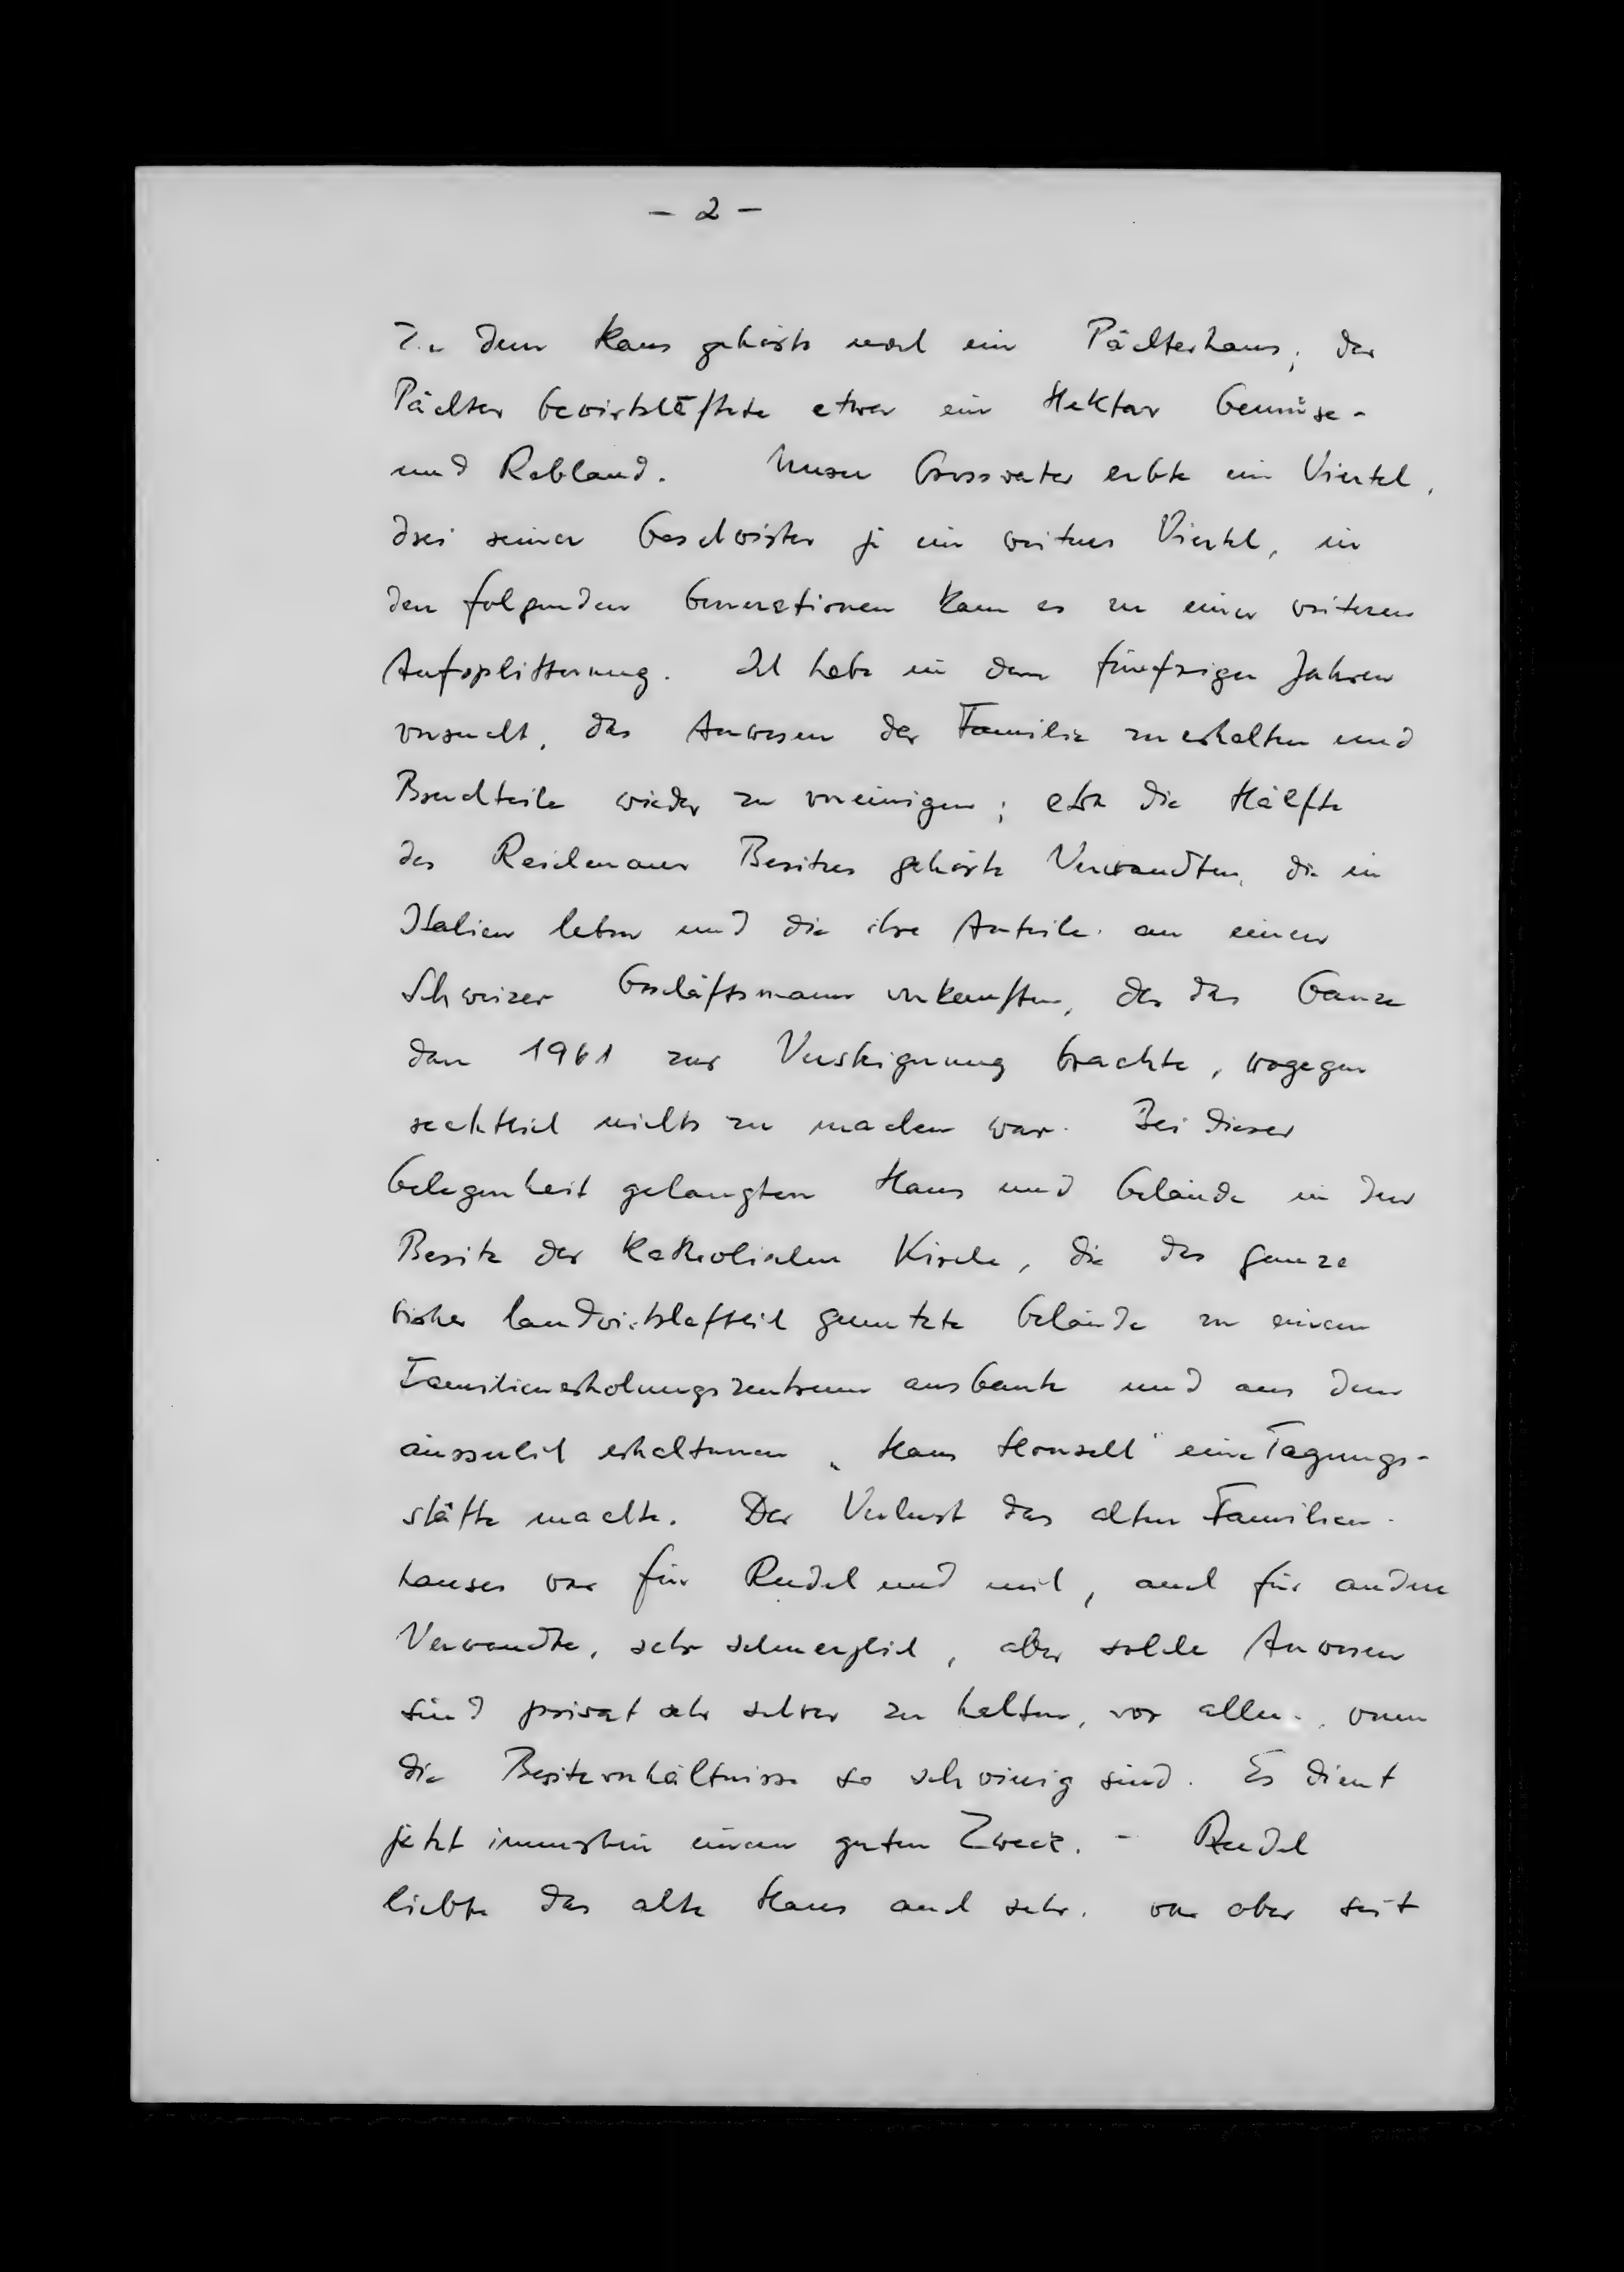 - 2 -
Zu dem Haus gehörte noch ein Pächterhaus; der
Pächter bewirtschaftete etwa ein Hektar Gemüse-
und Rebland. Unser Grossvater erbte ein Viertel,
drei seiner Geschwister je ein weiteres Viertel, in
den folgenden Generationen kam es zu einer weiteren
Aufsplitterung. Ich habe in den fünfziger Jahren
versucht, das Anwesen der Familie zu erhalten und
Bruchteile wieder zu vereinigen; etwa die Hälfte
des Reichenauer Besitzes gehörte Verwandten, die in
Italien leben und die ihre Anteile an einen
Schweizer Geschäftsmann verkauften, der das Ganze
dann 1961 zur Versteigerung brachte, wogegen
rechtlich nichts zu machen war. Bei dieser
Gelegenheit gelangten Haus und Gelände in den
Besitz der Katholischen Kirche, die das ganze
bisher landwirtschaftlich genutzte Gelände zu einem
Familienerholungszentrum ausbaute und aus dem
äusserlich erhaltenen „Haus Honsell" eine Tagungs-
stätte machte. Der Verlust des alten Familien-
hauses war für Rudel und mich, auch für andere
Verwandte, sehr schmerzlich, aber solche Anwesen
sind privat sehr schwer zu halten, vor allem, wenn
die Besitzverhältnisse so schwierig sind. Es dient
jetzt immerhin einem guten Zweck. - Rudel
liebte das alte Haus auch sehr, war aber seit